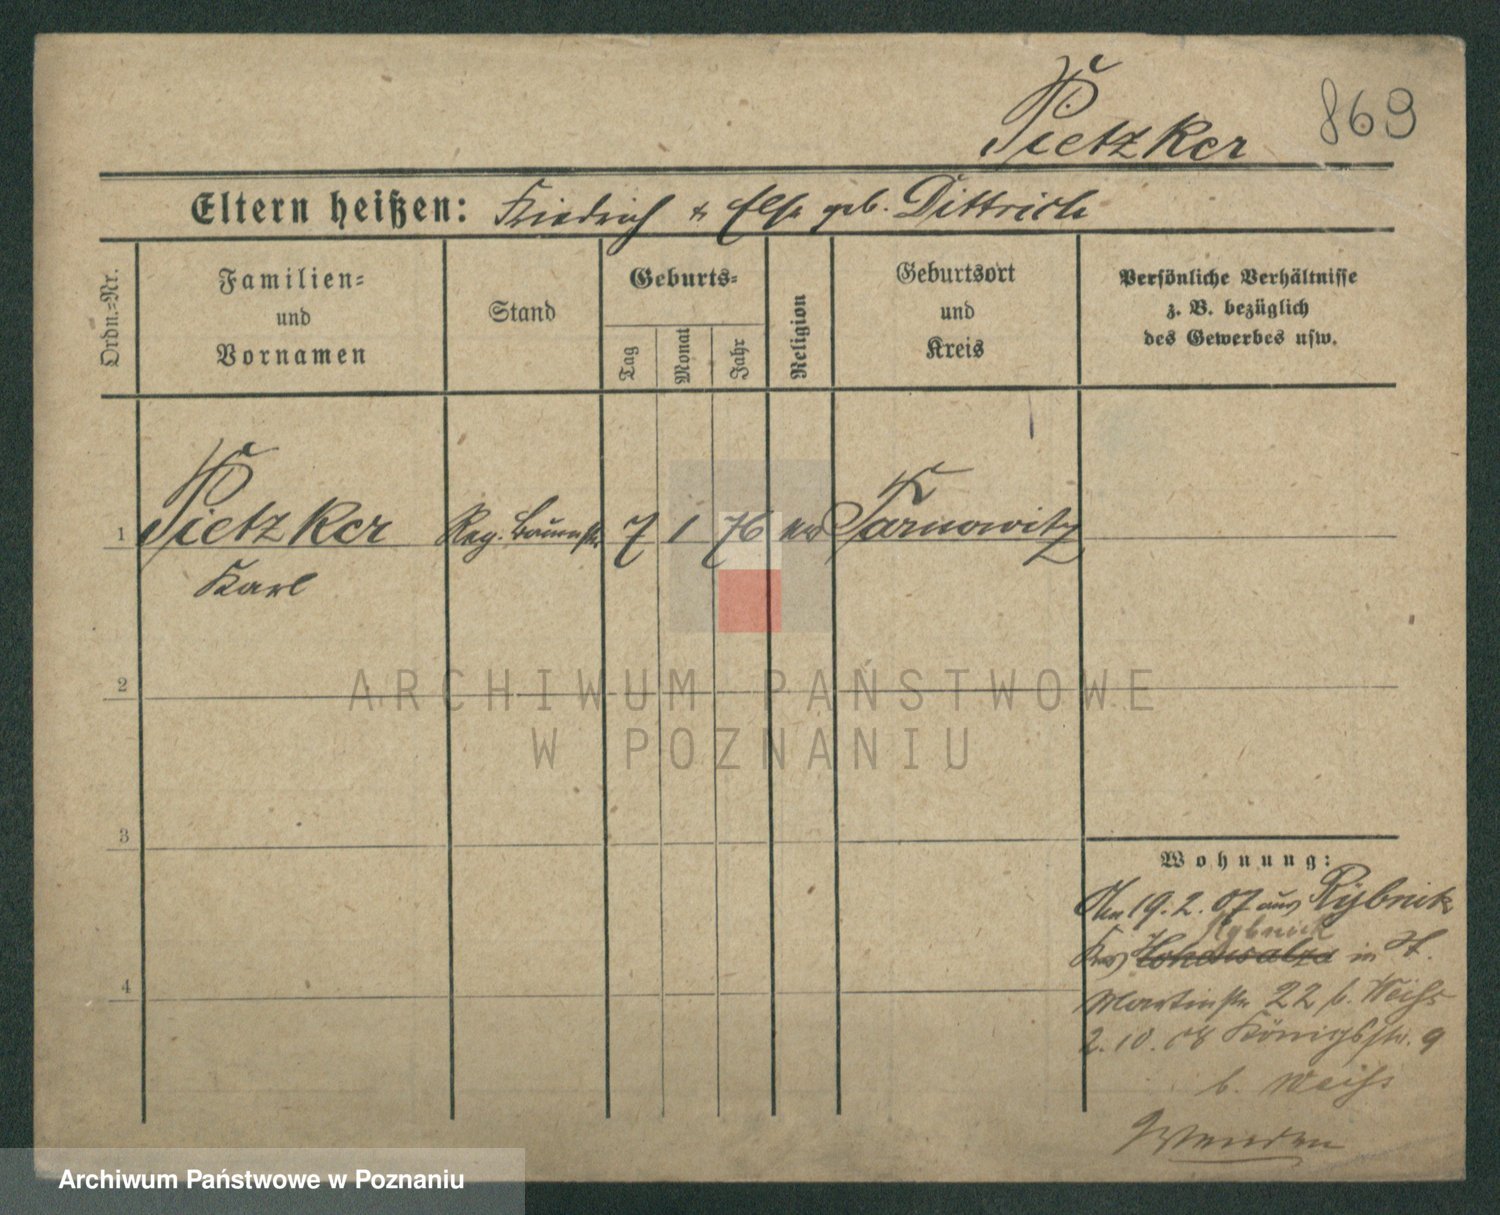 Pietzker
869
Eltern heißen: Friedrich & Else geb. Dittrich
Ordn.-Nr.
Familien-
und
Vornamen
Stand
Geburts-
Tag
Monat
Jahr
Religion
Geburtsort
und
Kreis
Persönliche Verhältnisse
z. B. bezüglich
des Gewerbes usw.
1 Pietzker Reg. Baumstr 7 1 76 ev Tarnowitz
K
Karl
2
3
4
Wohnung:
19. 2. 07 aus Rybnik
Rybnick
Krs Hohensalza in
Martinstr 22 b. Weiss
2. 10. 08 Königstr. 9
b. Weiss
ARCHIWUM PAŃSTWOWE
W POZNANIU
Archiwum Państwowe w Poznaniu